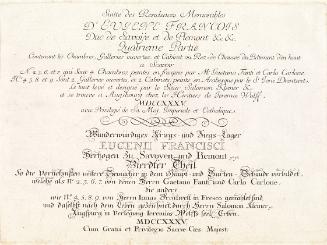 Suitte des Residences Memorables
D'EUGENE FRANCOIS
Duc de Savoye et de Piemont &c &c
Quatrieme Partie
Contenant les Chambres, Galleries ouvertes et Cabinet du Rez de Chaussée du Batiment d'en haut
a Scavoir
No 2, 6, et 7 qui sont 4 Chambres peintes en fresque par Mr Gaetano Fanti et Carlo Carlone
No 4, 5, 8, 9 sont 2 Galleries ouvertes et 2 Cabinets, peints en fresque par le Sr Drentwett
le tout levé et designé par le Sieur Salomon Kleiner &c
et se trouve a Augsbourg chez les Heritiers de Jeremie Wolff
MDCCXXXV
avec Privilege de Sa Maj. Imperiale et Catholique
Wunderwürdiges Kriegs- und Siegs-Lager
EUGENII FRANCISCI
Hertzogen zu Savoyen und Piemont
Vierdter Theil
So die Vornehmsten
welche als No 2, 6, 7 von denen Herren Gaetano Fanti und Carlo Carlone,
die andere
wie No 4, 5, 8, 9 von Herren Ionas Drentwett in Fresco gemahlet sind,
und daselbst nach dem Leben gezeichnet durch Herrn Salomon Kleiner
Augspurg in Verlegung Ieremias Wolffs Seel. Erben
MDCCXXXV
Cum Gratia et Privilegio Sacrae Caes. Majest.